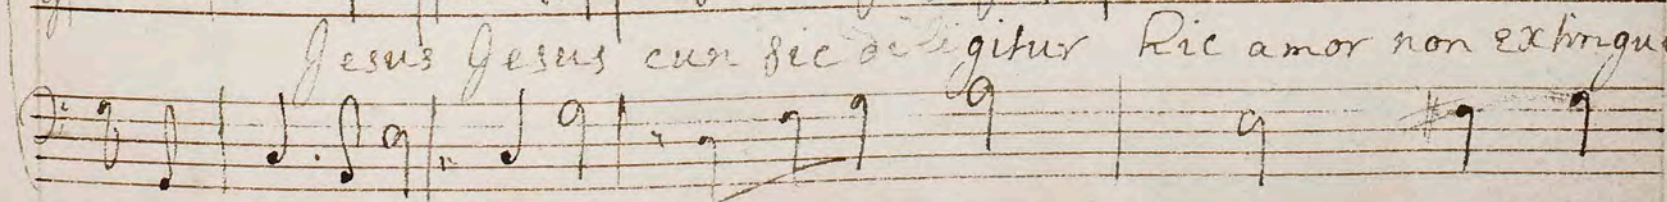 Jesus Jesus cur sic diligitur hic amor non extingu